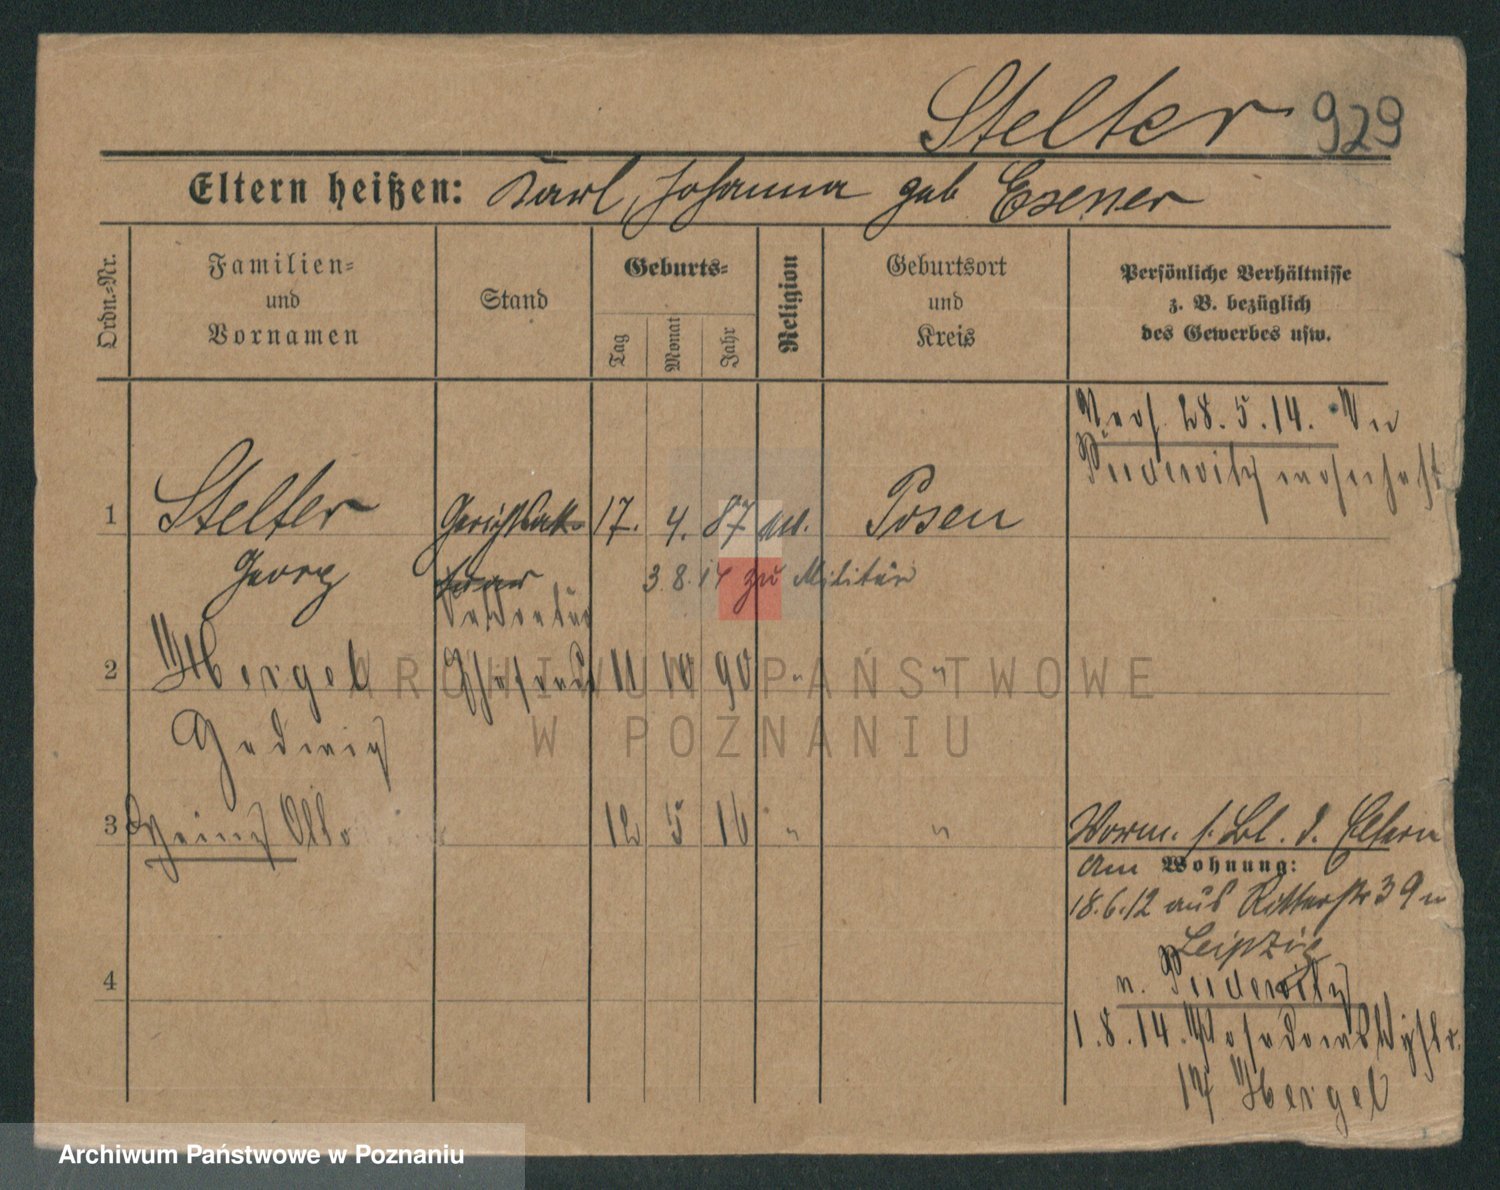 Stelter 929
Eltern heißen: Karl, Johanna geb Exener
Ordn.-Nr.
Familien-
und
Vornamen
Stand
Geburts-
Tag
Monat
Jahr
Religion
Geburtsort
und
Kreis
Persönliche Verhältnisse
z. B. bezüglich
des Gewerbes usw.
28.5.14.
Pudewitz wohnhaft
1 Stelter 17. 4. 87 ev. Posen
Georg
3.8.14 zu Militär
2 Hergel Ehefrau 11 10 90 " "
Hedwig
3 Heinz Otto 12 5 16 " "
Vorm. s. Bl. d. Eltern
Am Wohnung:
18.6.12 aus Ritterstr 39 n
Leipzig
n. Pudewitz
1.8.14.
17 Hergel
4
ARCHIWUM PAŃSTWOWE
W POZNANIU
Archiwum Państwowe w Poznaniu